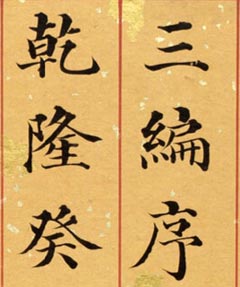 三編序
乾隆癸